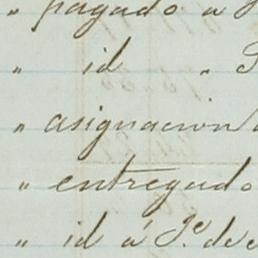 " pagado a
" id "
" asignacion
" entregado
" id á Je. de